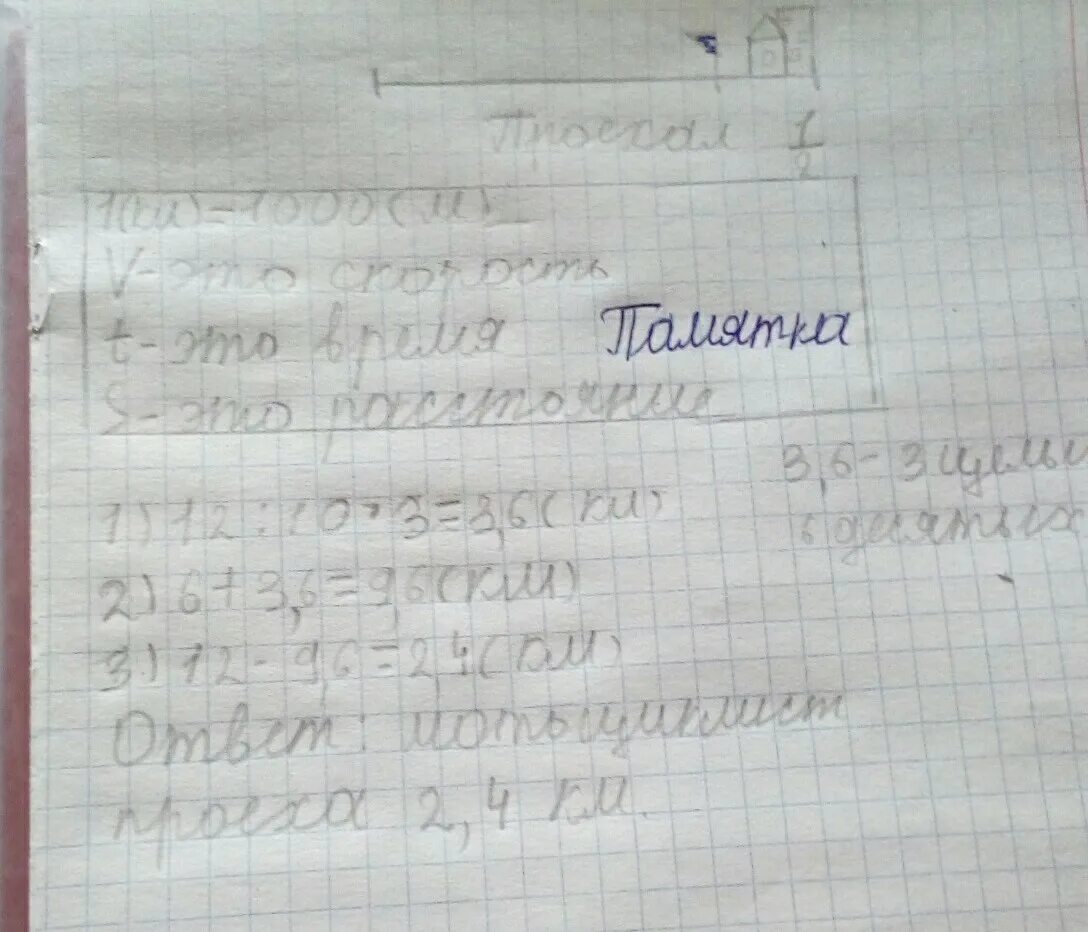 Проехал 1/2
1(км)=1000(м)
V-это скорость
t-это время Памятка
S-это расстояние
3,6-3 целых
6 десятых
1) 12:10·3=3,6(км)
2) 6+3,6=9,6(км)
3) 12-9,6=2,4(км)
Ответ: мотоциклист
проеха 2,4 км.